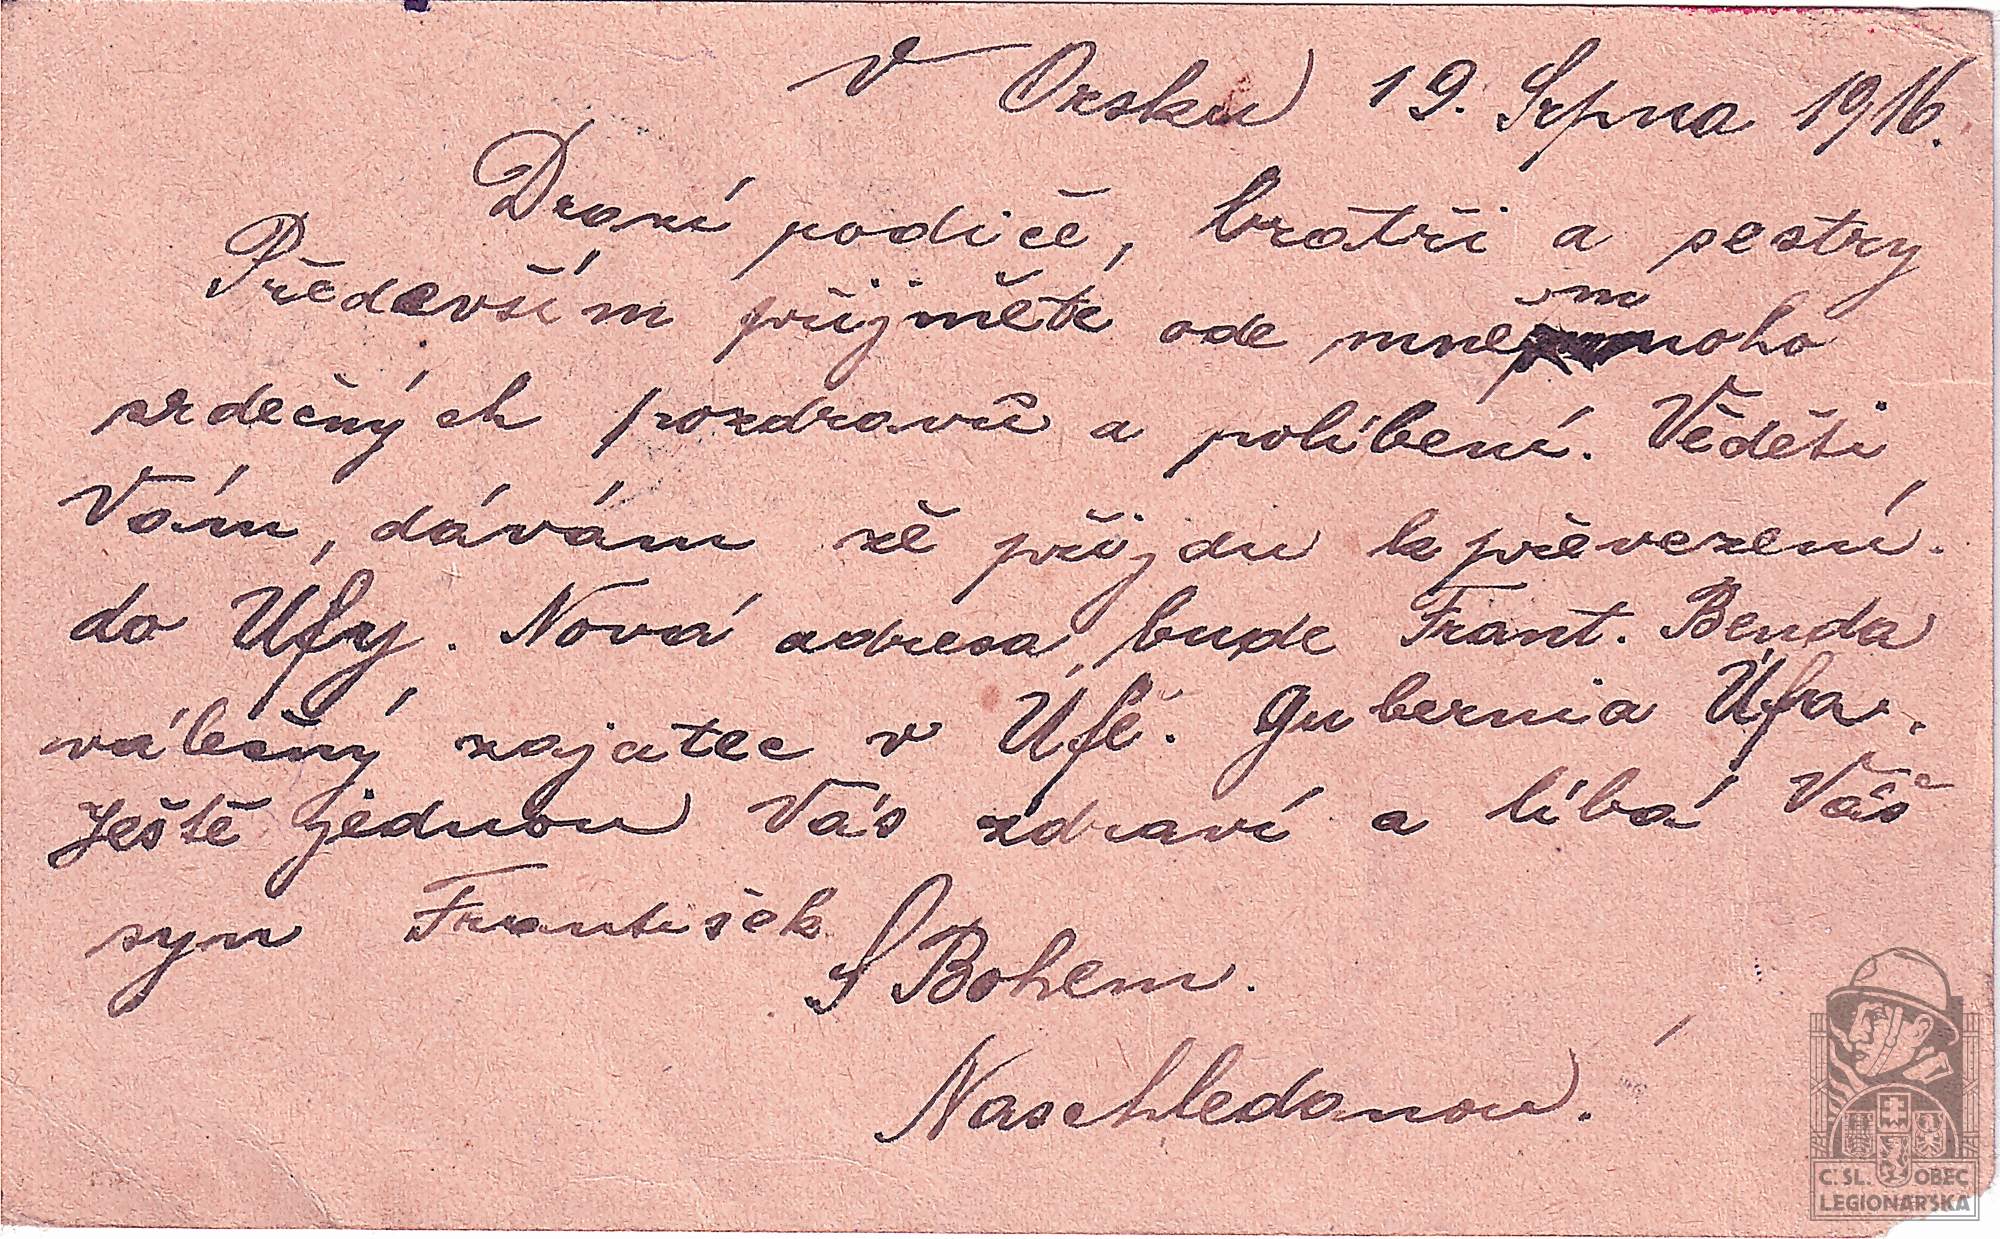 V Orsku 19. Srpna 1916.
Drazí rodiče, bratři a sestry
Především přijměte ode mne mnoho
srdečných pozdravů a políbení. Věděti
Vám, dávám že přijdu k převezení.
do Úfy. Nová adresa bude Frant. Benda
válečný zajatec v Úfě. Gubernia Úfa.
Ještě jednou Vás zdraví a líbá Váš
syn František
S Bohem.
Naschledanou.
Č. SL. OBEC
LEGIONÁŘSKÁ